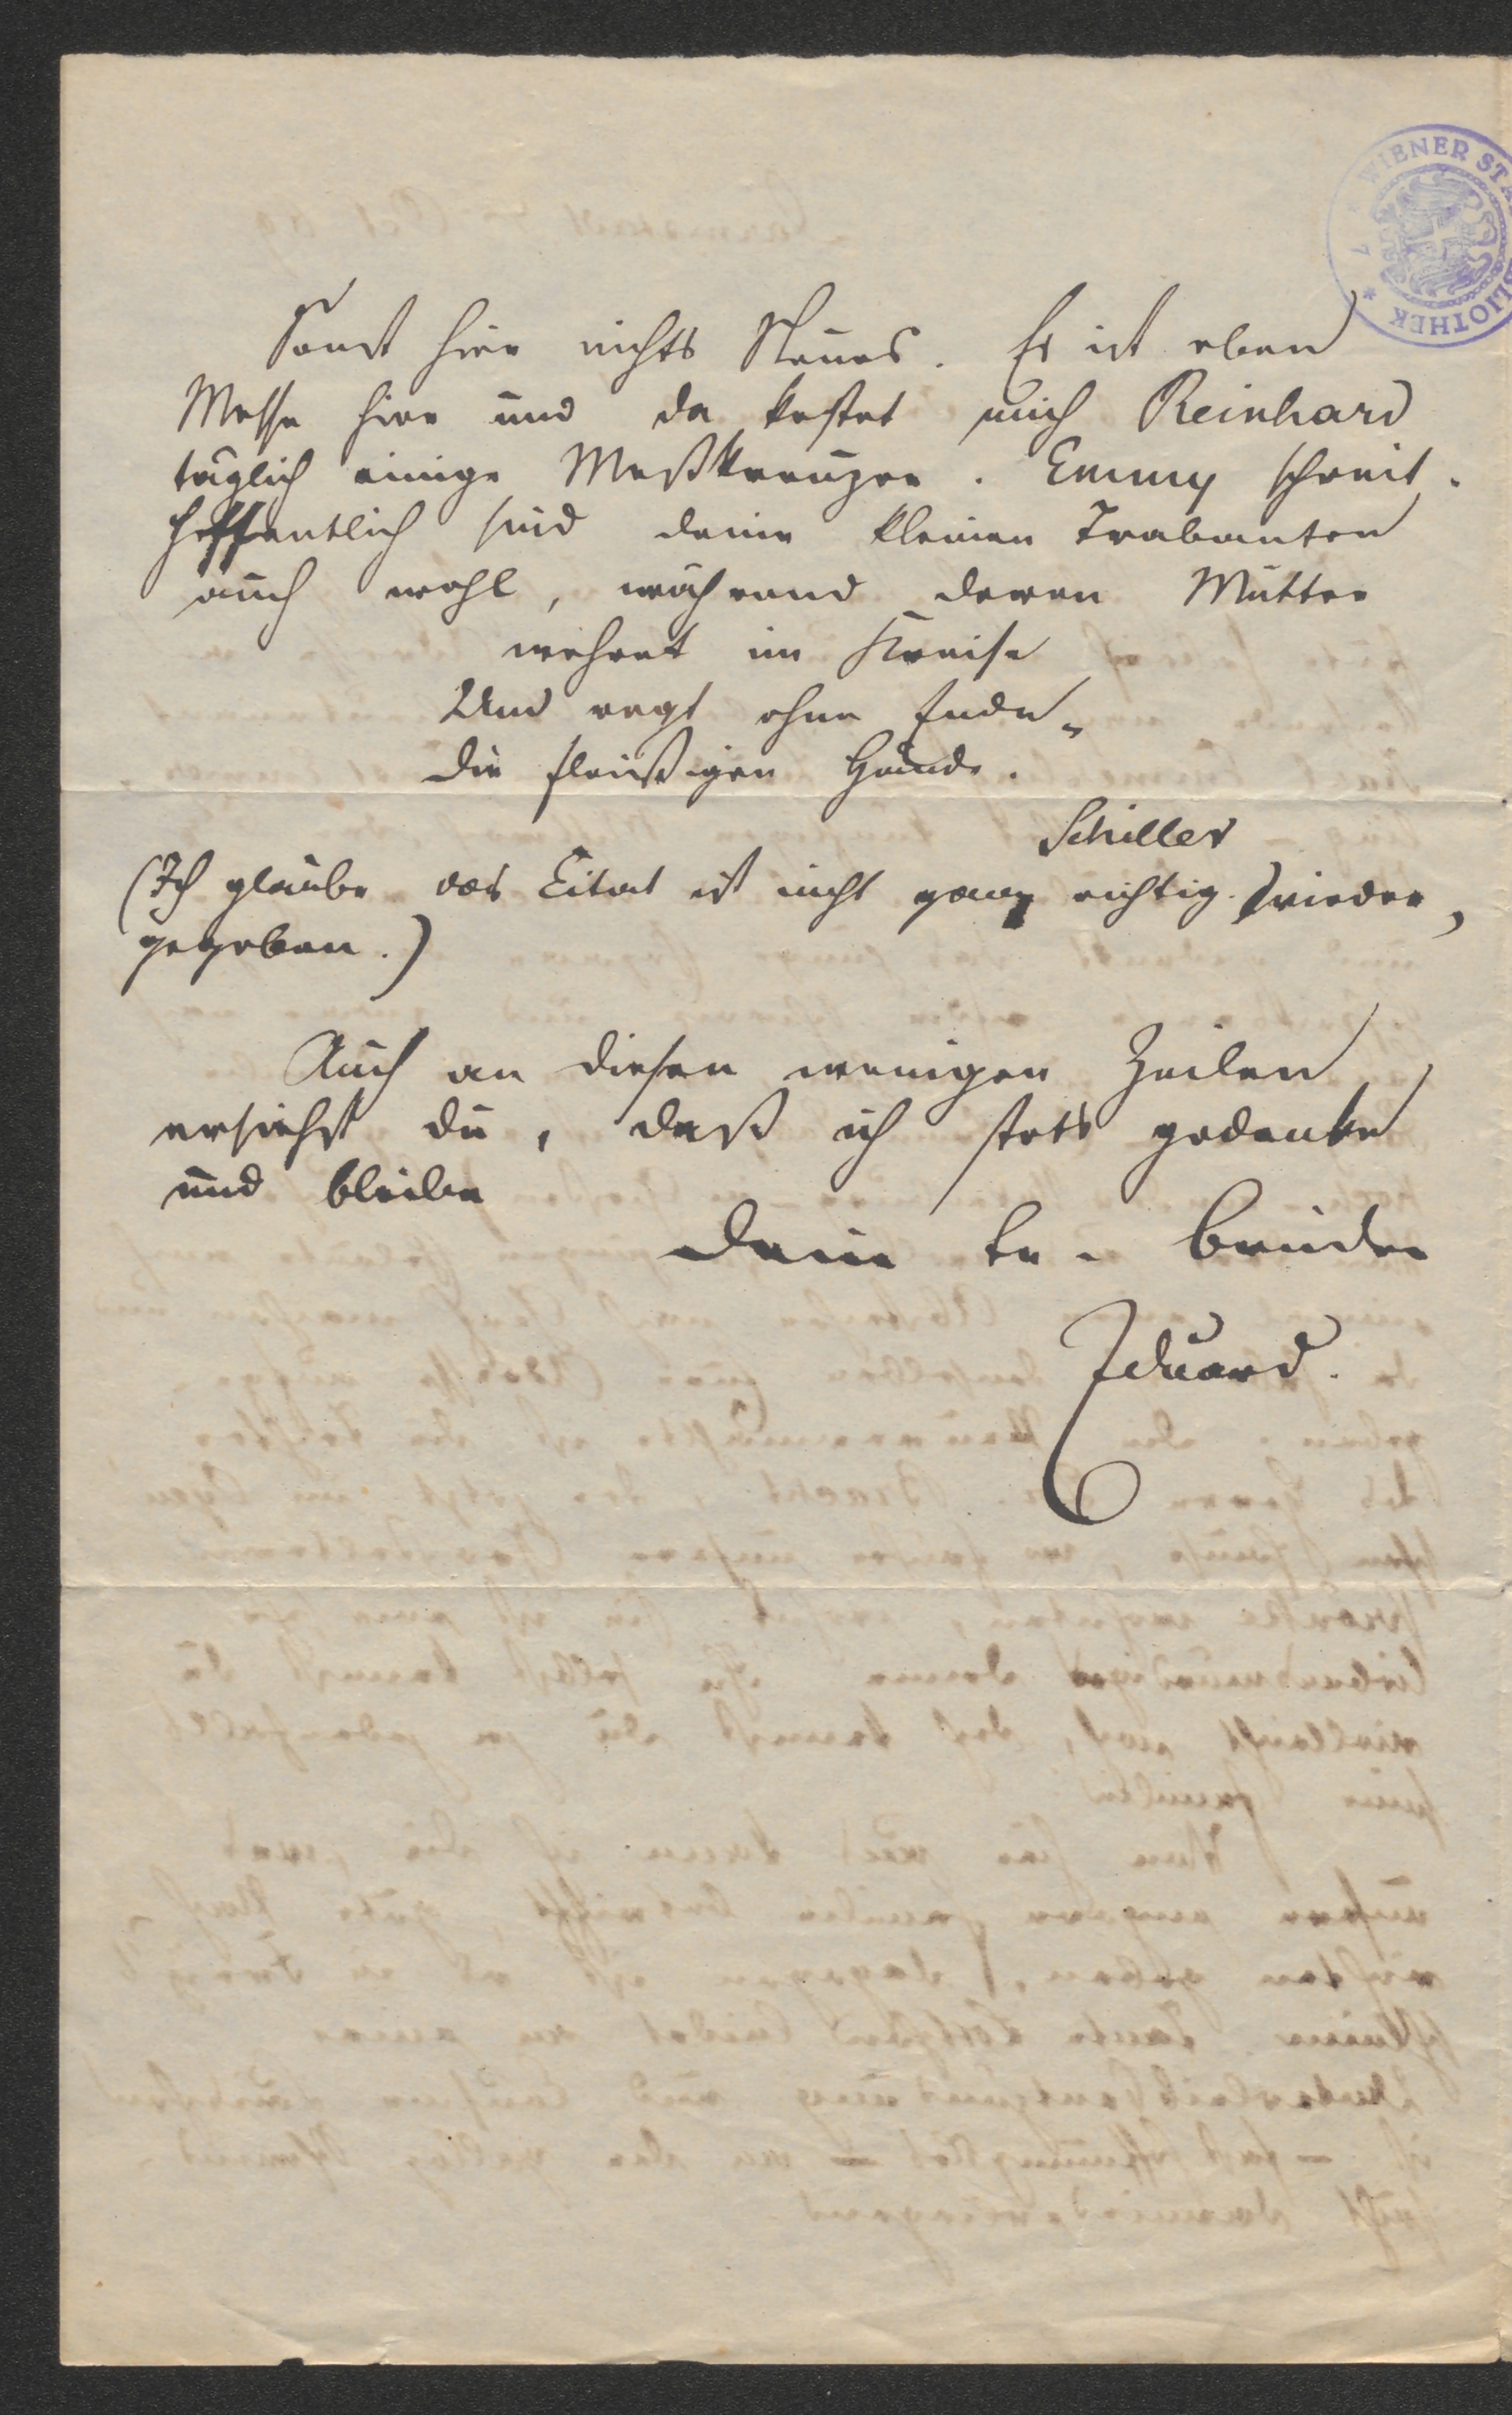 WIENER STA
LIOTHEK
Sonst hier nichts Neues. Es ist eben
Messe hier und da kostet mich Reinhard
täglich einige Meßkreuzer. Emmy schreit.
Hoffentlich sind deine kleinen Trabanten
auch wohl, während deren Mutter
wehret im Kreise
Und regt ohne Ende
Die fleißigen Hände.
Schiller
(Ich glaube das Citat ist nicht ganz richtig wieder,
gegeben.)
Auch an diesen wenigen Zeilen
ersiehst du, daß ich stets gedenke
und bleibe
Dein tr. Bruder
Eduard.